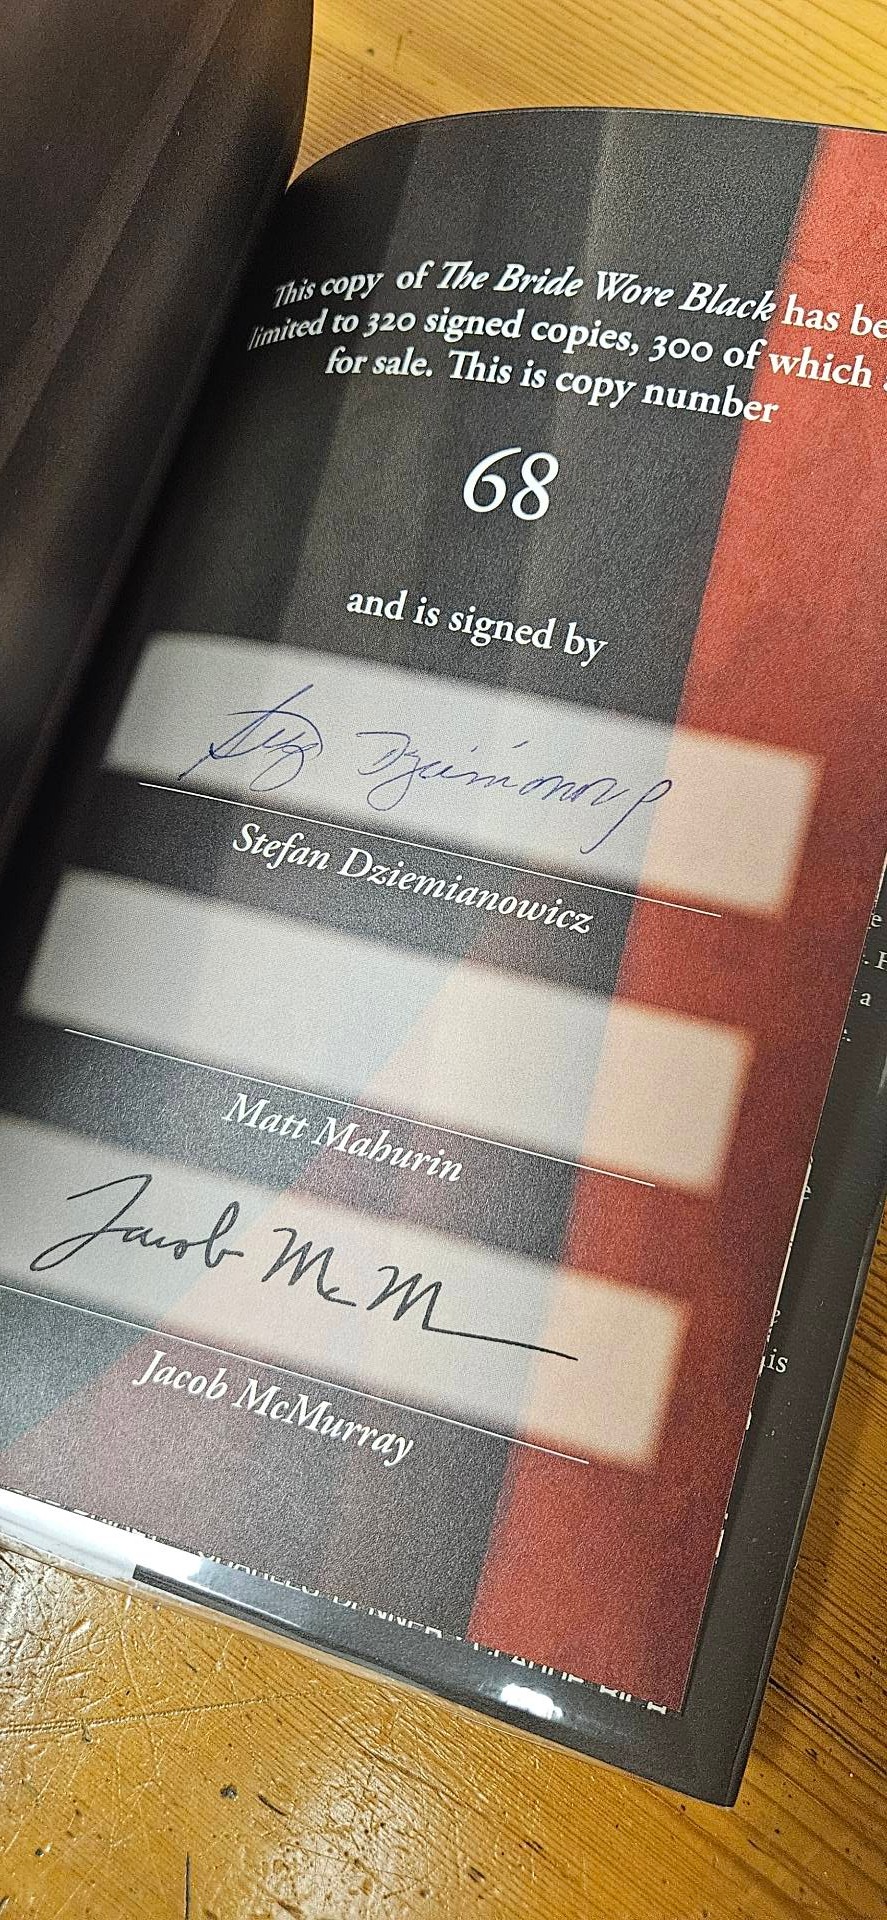 This copy of The Bride Wore Black has be
limited to 320 signed copies, 300 of which
for sale. This is copy number
68
and is signed by
Stefan Dziemianowicz
Matt Mahurin
Jacob McM
Jacob McMurray
a
is